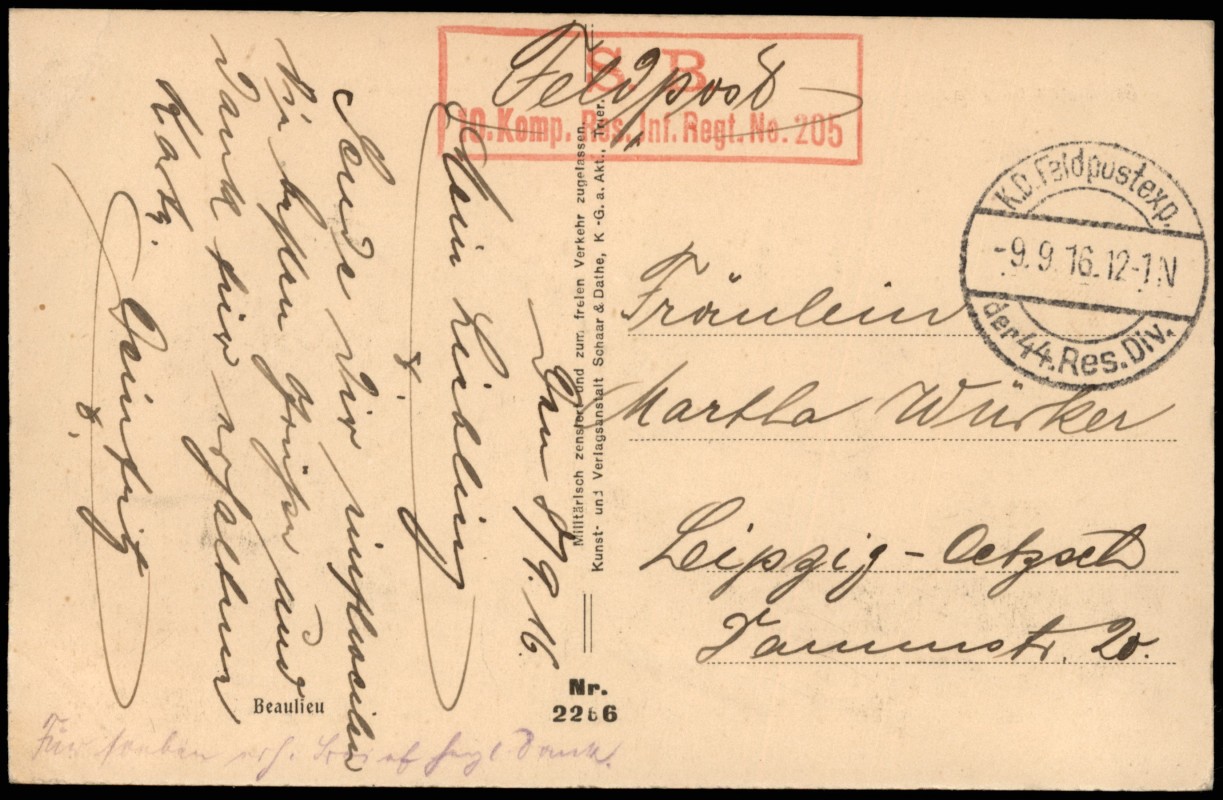 Feldpost
S. B.
10. Komp. Res. Inf. Regt. No. 205
K.D. Feldpostexp.
-9.9.16.12-1N
der 44. Res. Div.
Fräulein
Martha Würker
Leipzig - Oetzsch
Tammstr. 20.
Militärisch zensiert und zum freien Verkehr zugelassen.
Kunst- und Verlagsanstalt Schaar & Dathe, K.-G. a. Akt., Trier.
Nr.
2266
Beaulieu
Den 8/9.16
Mein Liebling
Sende Dir
die besten Grüße und
Dank für erhaltene
Karte.
Für soeben erh. Brief Dank.